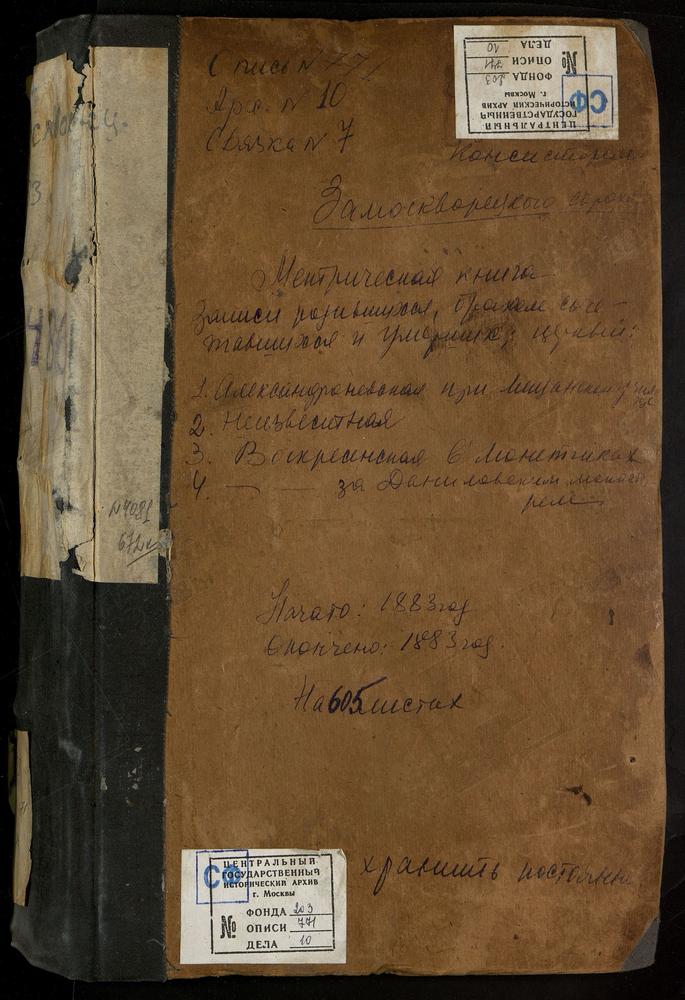 Опись № 771
Арх. № 10
Связка № 7
ЦЕНТРАЛЬНЫЙ
ГОСУДАРСТВЕННЫЙ
ИСТОРИЧЕСКИЙ АРХИВ
г. Москвы
СФ
№
ФОНДА 203
ОПИСИ 771
ДЕЛА 10
Консистория
Замоскворецкого сорока
Метрическая книга
Записи родившихся, браком соче-
тавшихся и умерших, церквей:
1. Александроневская при Мещанском
2. Неизвестная
3. Воскресенская в Монетчиках
4. — — за Даниловским монасты
рем
Начато: 1883 год
Окончено: 1883 год.
На 605 листах
хранить постоянно
N4081
672
ЦЕНТРАЛЬНЫЙ
ГОСУДАРСТВЕННЫЙ
ИСТОРИЧЕСКИЙ АРХИВ
г. Москвы
СФ
№
ФОНДА 203
ОПИСИ 771
ДЕЛА 10